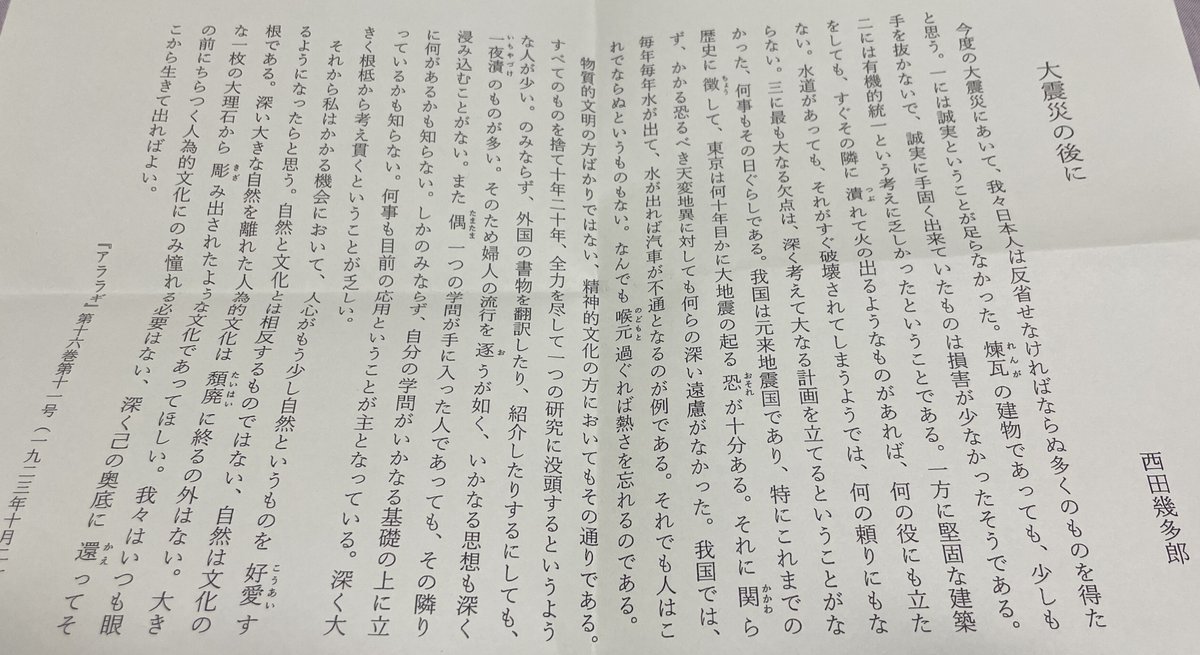 大震災の後に
西田幾多郎
今度の大震災にあいて、我々日本人は反省せなければならぬ多くのものを得た
と思う。一には誠実ということが足らなかった。煉瓦れんがの建物であっても、少しも
手を抜かないで、誠実に手固く出来ていたものは損害が少なかったそうである。
二には有機的統一という考えに乏しかったということである。一方に堅固な建築
をしても、すぐその隣に潰つぶれて火の出るようなものがあれば、何の役にも立た
ない。水道があっても、それがすぐ破壊されてしまうようでは、何の頼りにもな
らない。三に最も大なる欠点は、深く考えて大なる計画を立てるということがな
かった、何事もその日ぐらしである。我国は元来地震国であり、特にこれまでの
歴史に徴ちょうして、東京は何十年目かに大地震の起る恐おそれが十分ある。それに関かかわら
ず、かかる恐るべき天変地異に対しても何らの深い遠慮がなかった。我国では、
毎年毎年水が出て、水が出れば汽車が不通となるのが例である。それでも人はこ
れでならぬというものもない。なんでも喉元のどもと過ぐれば熱さを忘れるのである。
物質的文明の方ばかりではない、精神的文化の方においてもその通りである。
すべてのものを捨て十年二十年、全力を尽して一つの研究に没頭するというよう
な人が少い。のみならず、外国の書物を翻訳したり、紹介したりするにしても、
一夜漬いちやづけのものが多い。そのため婦人の流行を逐おうが如く、いかなる思想も深く
浸み込むことがない。また偶たまたま一つの学問が手に入った人であっても、その隣り
に何があるかも知らない。しかのみならず、自分の学問がいかなる基礎の上に立
っているかも知らない。何事も目前の応用ということが主となっている。深く大
きく根柢から考え貫くということが乏しい。
それから私はかかる機会において、人心がもう少し自然というものを好愛こうあいす
るようになったらと思う。自然と文化とは相反するものではない、自然は文化の
根である。深い大きな自然を離れた人為的文化は頽廃たいはいに終るの外はない。大き
な一枚の大理石から彫きざみ出されたような文化であってほしい。我々はいつも眼
の前にちらつく人為的文化にのみ憧れる必要はない、深く己の奥底に還かえってそ
こから生きて出ればよい。
『アララギ』第十六巻第十一号（一九二三年十月二